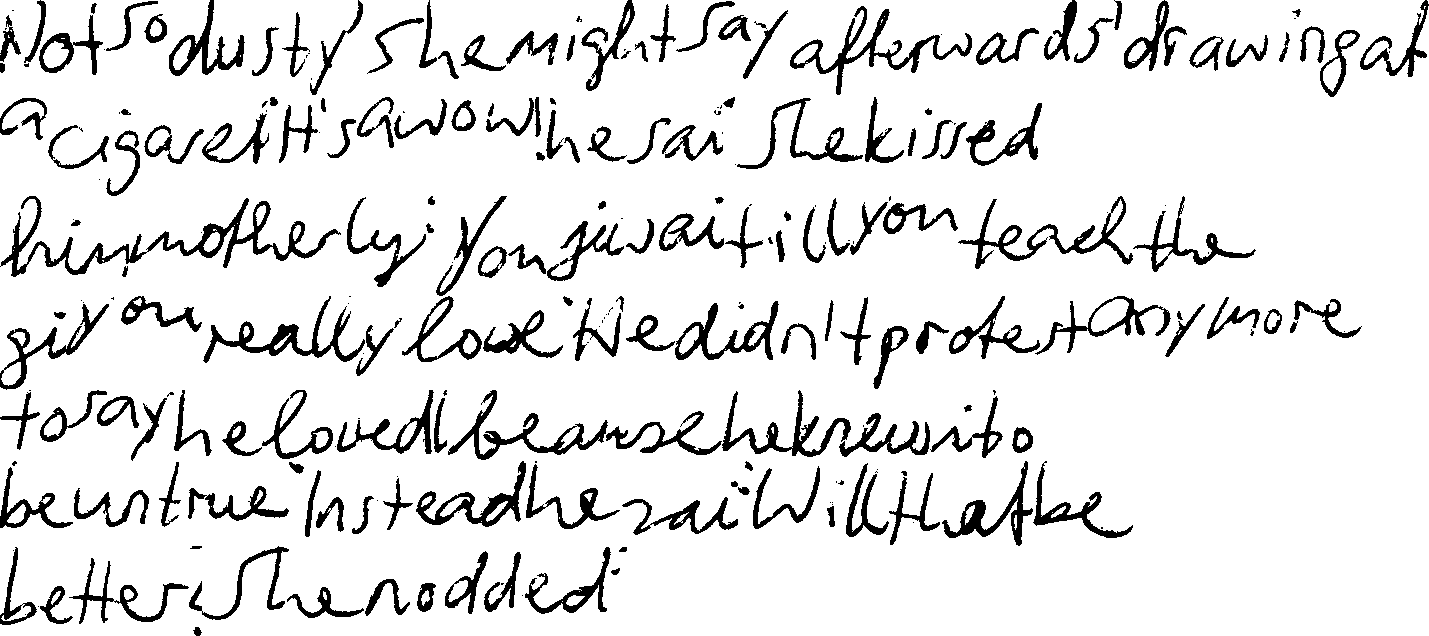 Not so dusty' she might say afterwards' drawing at
a cigaret 'It's a wow'! he sai She kissed
him motherly: You ju wait till you teach the
gi you really love 'He didn't protest any more
to say he loved because he knew it to
be untrue Instead he sai: Will that be
better? She nodded: